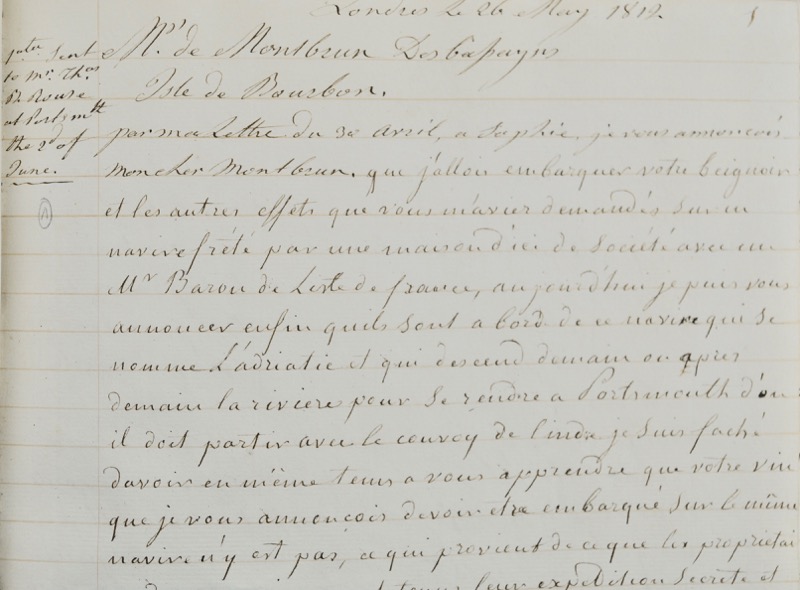 Londres Le 26 May 1812.
pater Sent
to Mr. Thos
at Portsmth
the 2d of
June.
Mr. de Montbrun Desbassayns
Isle de Bourbon.
par ma Lettre du 30 avril, a Sophie, je vous annoncois
mon cher Montbrun, que j'allois embarquer votre beignoir
et les autres effets que vous m'aviez demandés Sur un
navire frété par une maison d'ici de Société avec un
Mr Baron de L'isle de france, aujourd'hui je puis vous
annoncer enfin quils Sont a bord de ce navire qui Se
nomme L'adriatic et qui descend demain ou apres
demain la riviere pour Se rendre a Portsmouth d'ou
il doit partir avec le convoy de linde je Suis faché
davoir en même tems a vous apprendre que votre vin
que je vous annoncois devoir etre embarqué Sur le même
navire n'y est pas, ce qui provient de ce que les proprietai
leur expedition Secrete et